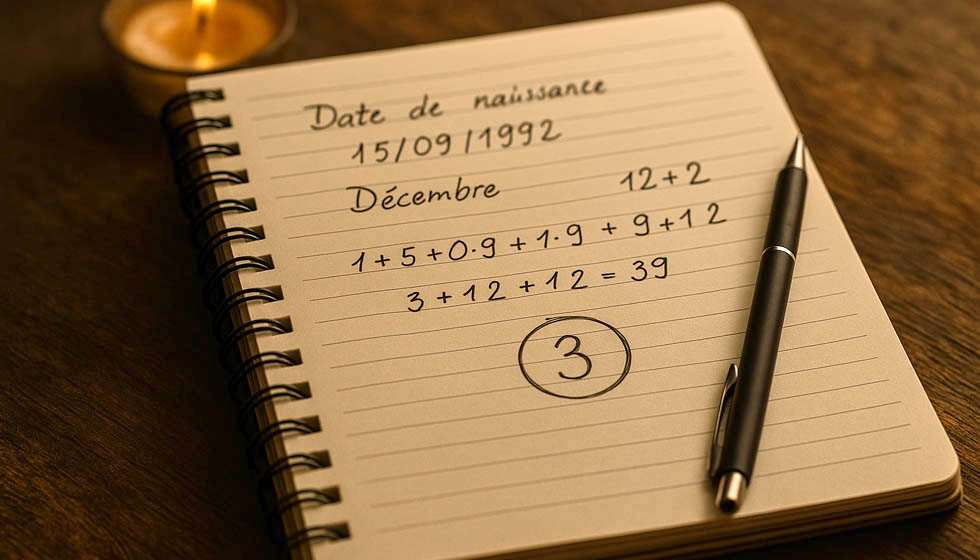 Date de naissance
15/09/1992
Décembre 12+2
1+5+0·9+1·9+9+12
3+12+12=39
3